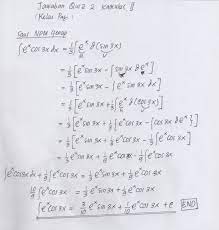 Jawaban Quiz 2 Kalkulus II
(Kelas Pagi)
Soal No Genap
∫eˣcos3x dx = 1/3 ∫eˣ d(sin3x)
= 1/3 [eˣsin3x - ∫sin3x deˣ]
= 1/3 [eˣsin3x - ∫eˣsin3x dx]
= 1/3 [eˣsin3x + 1/3 ∫eˣ d(cos3x)]
= 1/3 [eˣsin3x + 1/3 {eˣcos3x - ∫cos3x deˣ}]
= 1/3 eˣsin3x + 1/9 eˣcos3x - 1/9 ∫eˣcos3x
∫eˣcos3x dx + 1/9 ∫eˣcos3x = 1/3 eˣsin3x + 1/9 eˣcos3x
10/9 ∫eˣcos3x = 1/3 eˣsin3x + 1/9 eˣcos3x
∫eˣcos3x = 3/10 eˣsin3x + 1/10 eˣcos3x + c END